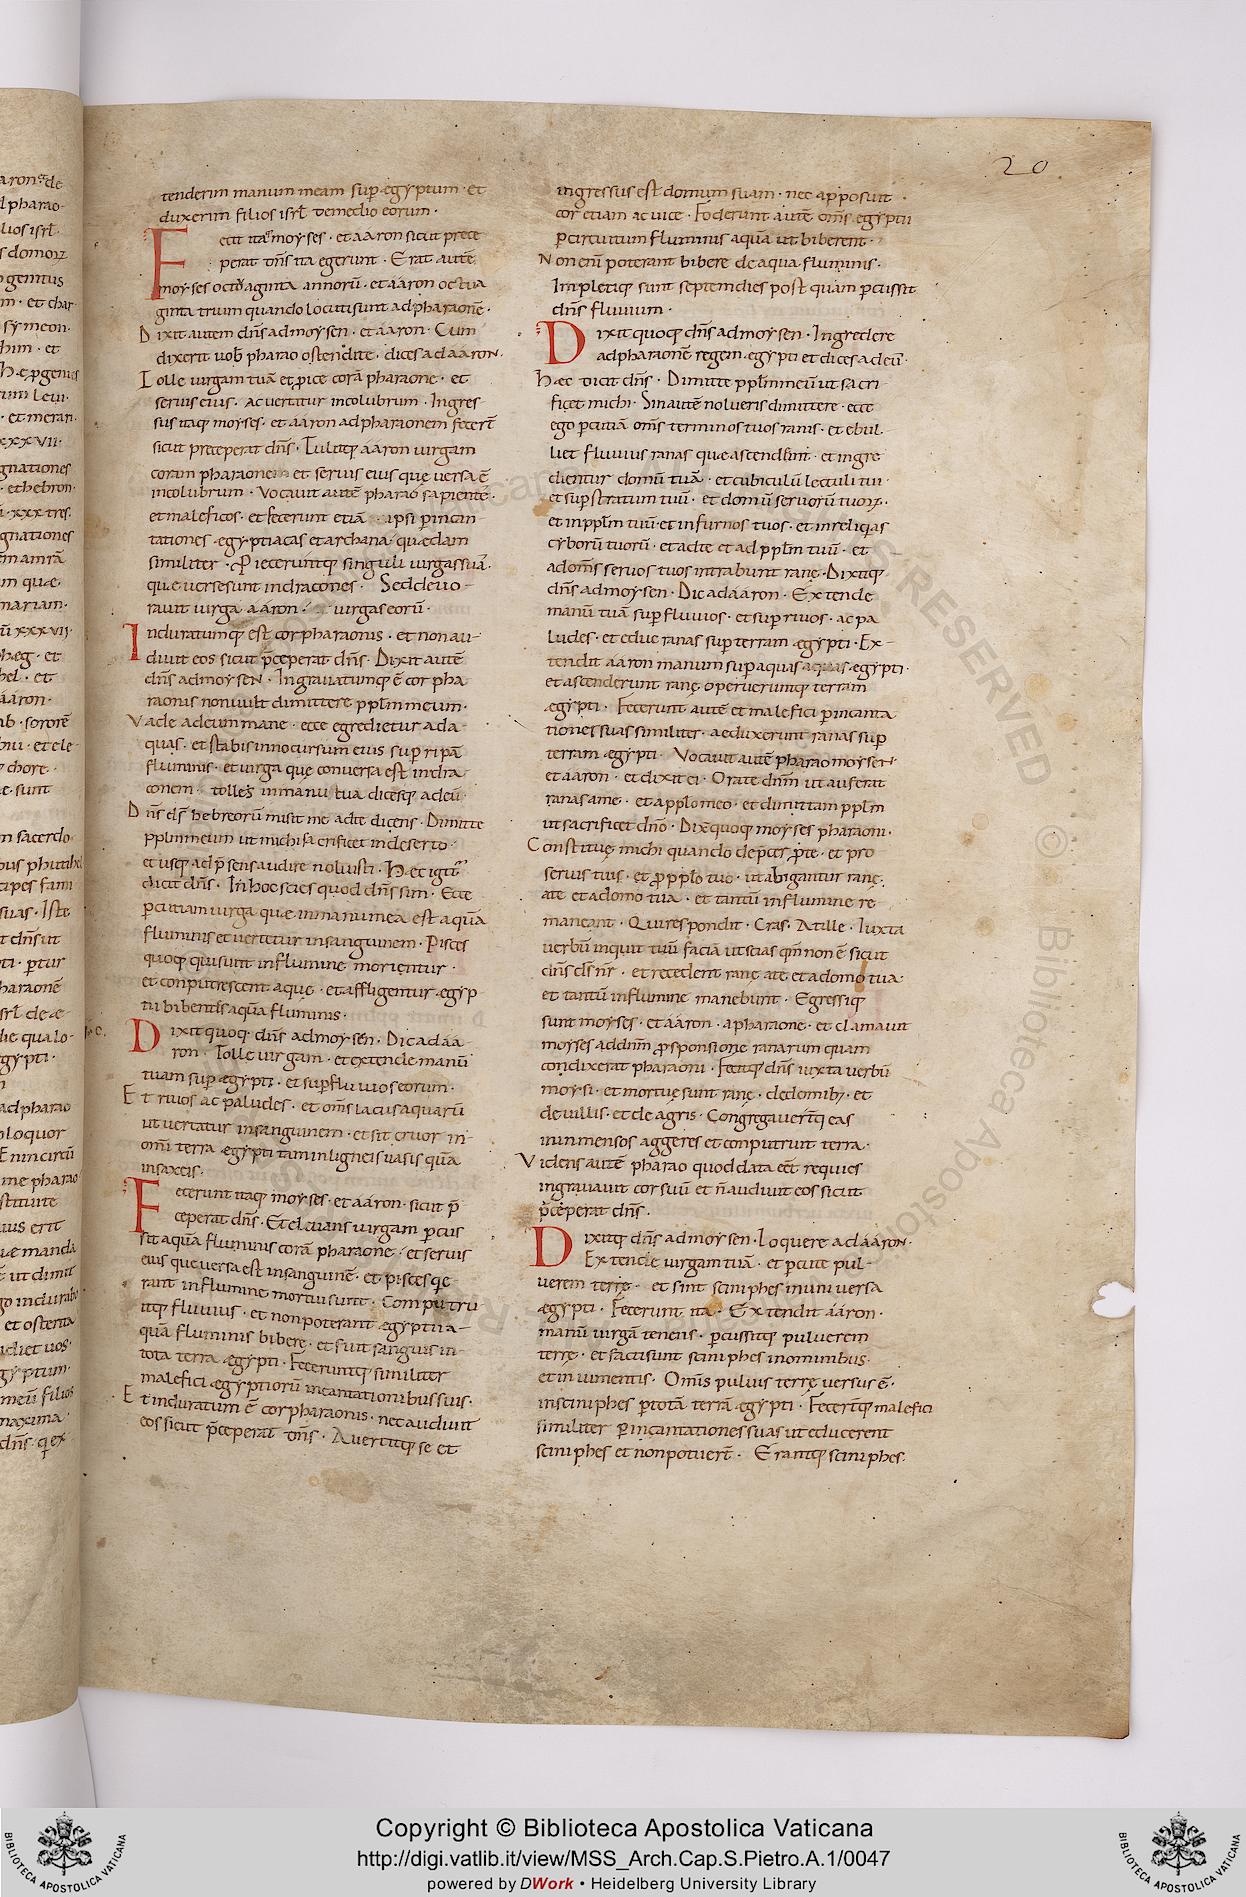 20
tenderim manum meam sup egyptum · et
duxerim filios isrł demedio eorum ·
Fecit itaq; moyses · et aaron sicut prece
perat dñs ita egerunt · Erat autē
moyses octoaginta annorū · et aaron octua
ginta trium quando locuti sunt ad pharaonē ·
Dixit autem dñs admoysen · et aaron · Cum
dixerit uob pharao ostendite · dices ad aaron ·
Tolle uirgam tuā et pice corā pharaone · et
seruis eius · ac uertitur in colubrum · Ingres
sus itaq; moyses · et aaron ad pharaonem fecert̄
sicut preceperat dñs · Tulitq; aaron uirgam
coram pharaonem et seruis eius quę uersa ē
incolubrum · Vocauit autē pharao sapientē ·
et maleficos · et fecerunt etiā ipsi p incan
tationes egyptiacas et archana quædam
similiter · Pieceruntq; singuli uirgas suā ·
quæ uersesunt indracones · Sed deuo-
rauit uirga aaron · uirgas eorū ·
Induratumq; est cor pharaonis · et non au-
diuit eos sicut p̄ceperat dñs · Dixit autē
dñs admoysen · Ingrauatumq; ē cor pha
raonis non uult dimittere pplm meum ·
Vade ad eum mane · ecce egredietur ad a-
quas · et stabis in nocursum eius sup ripā
fluminis · et uirga quę conuersa est indra
conem · tolles in manu tua dicesq; ad eū ·
Dñs dš hebreorū misit me ad te dicens · Dimitte
pplm meum ut michi sacrificet in deserto ·
et usq; ad p̄sens audire noluisti · Hęc igitur
dicit dñs · In hoc scies quod dñs sim · Ecce
pcutiam uirga quæ inmanu mea est aquā
fluminis et uertetur in sanguinem · Pisces
quoq; qui sunt in flumine morientur ·
et conputrescent aque · et affligentur egyp
tii bibentes aquā fluminis ·
Dixit quoq; dñs admoysen · Dic ad aa
ron · Tolle uirgam · et extende manū
tuam sup ægypti · et sup fluuios eorum ·
Et riuos ac paludes · et om̄s lacus aquarū
ut uertatur in sanguinem · et sit cruor in
omni terra ægypti tam in ligneis uasis quā
in saxeis ·
Fecerunt itaq; moyses · et aaron · sicut p̄
ceperat dñs · Et eleuans uirgam pcus
sit aquā fluminis corā pharaone · et seruis
eius que uersa est in sanguinē · et pisces q̄e
rant in flumine mortui sunt · Computru
itq; fluuius · et non poterant ægyptii a-
quā fluminis bibere · et fuit sanguis in
tota terra ægypti · Feceruntq; similiter
malefici ægyptiorū incantationibus suis ·
Et induratum ē cor pharaonis · nec audiuit
eos sicut p̄ceperat dñs · Auertitq; se et
ingressus est domum suam · nec apposuit
cor etiam ac uice · Foderunt autē om̄s egyptii
pcircuitum fluminis aquā ut biberent ·
Non enī poterant bibere de aqua fluminis ·
Impletiq; sunt septemdies post quam pcussit
dñs fluuium ·
Dixit quoq; dñs admoysen · Ingredere
ad pharaonē regem egypti et dices ad eū ·
Hæc dicit dñs · Dimitte pplm meū ut sacri
ficet michi · Sin autē nolueris dimittere · ecce
ego pcutiā om̄s terminos tuos ranis · et ebul-
liet fluuius ranas quæ ascendent · et ingre
dientur domū tuā · et cubiculū lectuli tui
et sup stratum tuū · et domū seruorū tuoꝝ ·
et in pplm tuū · et in furnos tuos · et in reliqias
cyborū tuorū · et ad te et ad pplm tuū · et
ad om̄s seruos tuos intrabunt ranę · Dixitq;
dñs admoysen · Dic ad aaron · Extende
manū tuā sup fluuios · et sup riuos · ac pa
ludes · et educ ranas sup terram ægypti · Ex-
tendit aaron manum sup aquas aquas egypti ·
et ascenderunt ranę operueruntq; terram
ægypti · Fecerunt autē et malefici p incanta
tiones suas similiter · aeduxerunt ranas sup
terram ægypti · Vocauit autē pharao moysen ·
et aaron · et dixit ei · Orate dnm̄ ut auferat
ranas ame · et a pplo meo · et dimittam pplm
ut sacrificet dño · Dix̄ quoq; moyses pharaoni ·
Constituę michi quando depcer p te · et pro
seruis tuis · et p pplo tuo · ut abigantur ranę ·
a te et a domo tua · et tantū in flumine re
maneant · Qui respondit · Cras · At ille · Iuxta
uerbū inquit tuū faciā ut scias qm̄ non ē sicut
dñs dš nr̄ · et recedent ranę a te et a domo tua ·
et tantū in flumine manebunt · Egressiq;
sunt moyses · et aaron · a pharaone · et clamauit
moyses ad dnm̄ p sponsione ranarum quam
condixerat pharaoni · Fecitq; dñs iuxta uerbū
moysi · et mortuę sunt ranę · de domibꝫ · et
de uillis · et de agris · Congregauert̄q; eas
in inmensos aggeres et conputruit terra ·
Videns autē pharao quod data eēt requies
ingrauauit cor suū et n̄ audiuit eos sicut
p̄ceperat dñs ·
Dixitq; dñs admoysen · Loquere ad aaron ·
Extende uirgam tuā · et pcute pul-
uerem terrę · et sint sciniphes in uniuersa
ægypti · Fecerunt ita · Extendit aaron ·
manū uirgā tenens · pcussitq; puluerem
terrę · et facti sunt sciniphes in ominibus ·
et in iumentis · Omīs puluis terrę uersus ē ·
in sciniphes p totā terrā ægypti · Fecert̄q; malefici
similiter p incantationes suas ut educerent
sciniphes et non potuert̄ · Erantq; sciniphes ·
Copyright © Biblioteca Apostolica Vaticana
http://digi.vatlib.it/view/MSS_Arch.Cap.S.Pietro.A.1/0047
powered by DWork • Heidelberg University Library